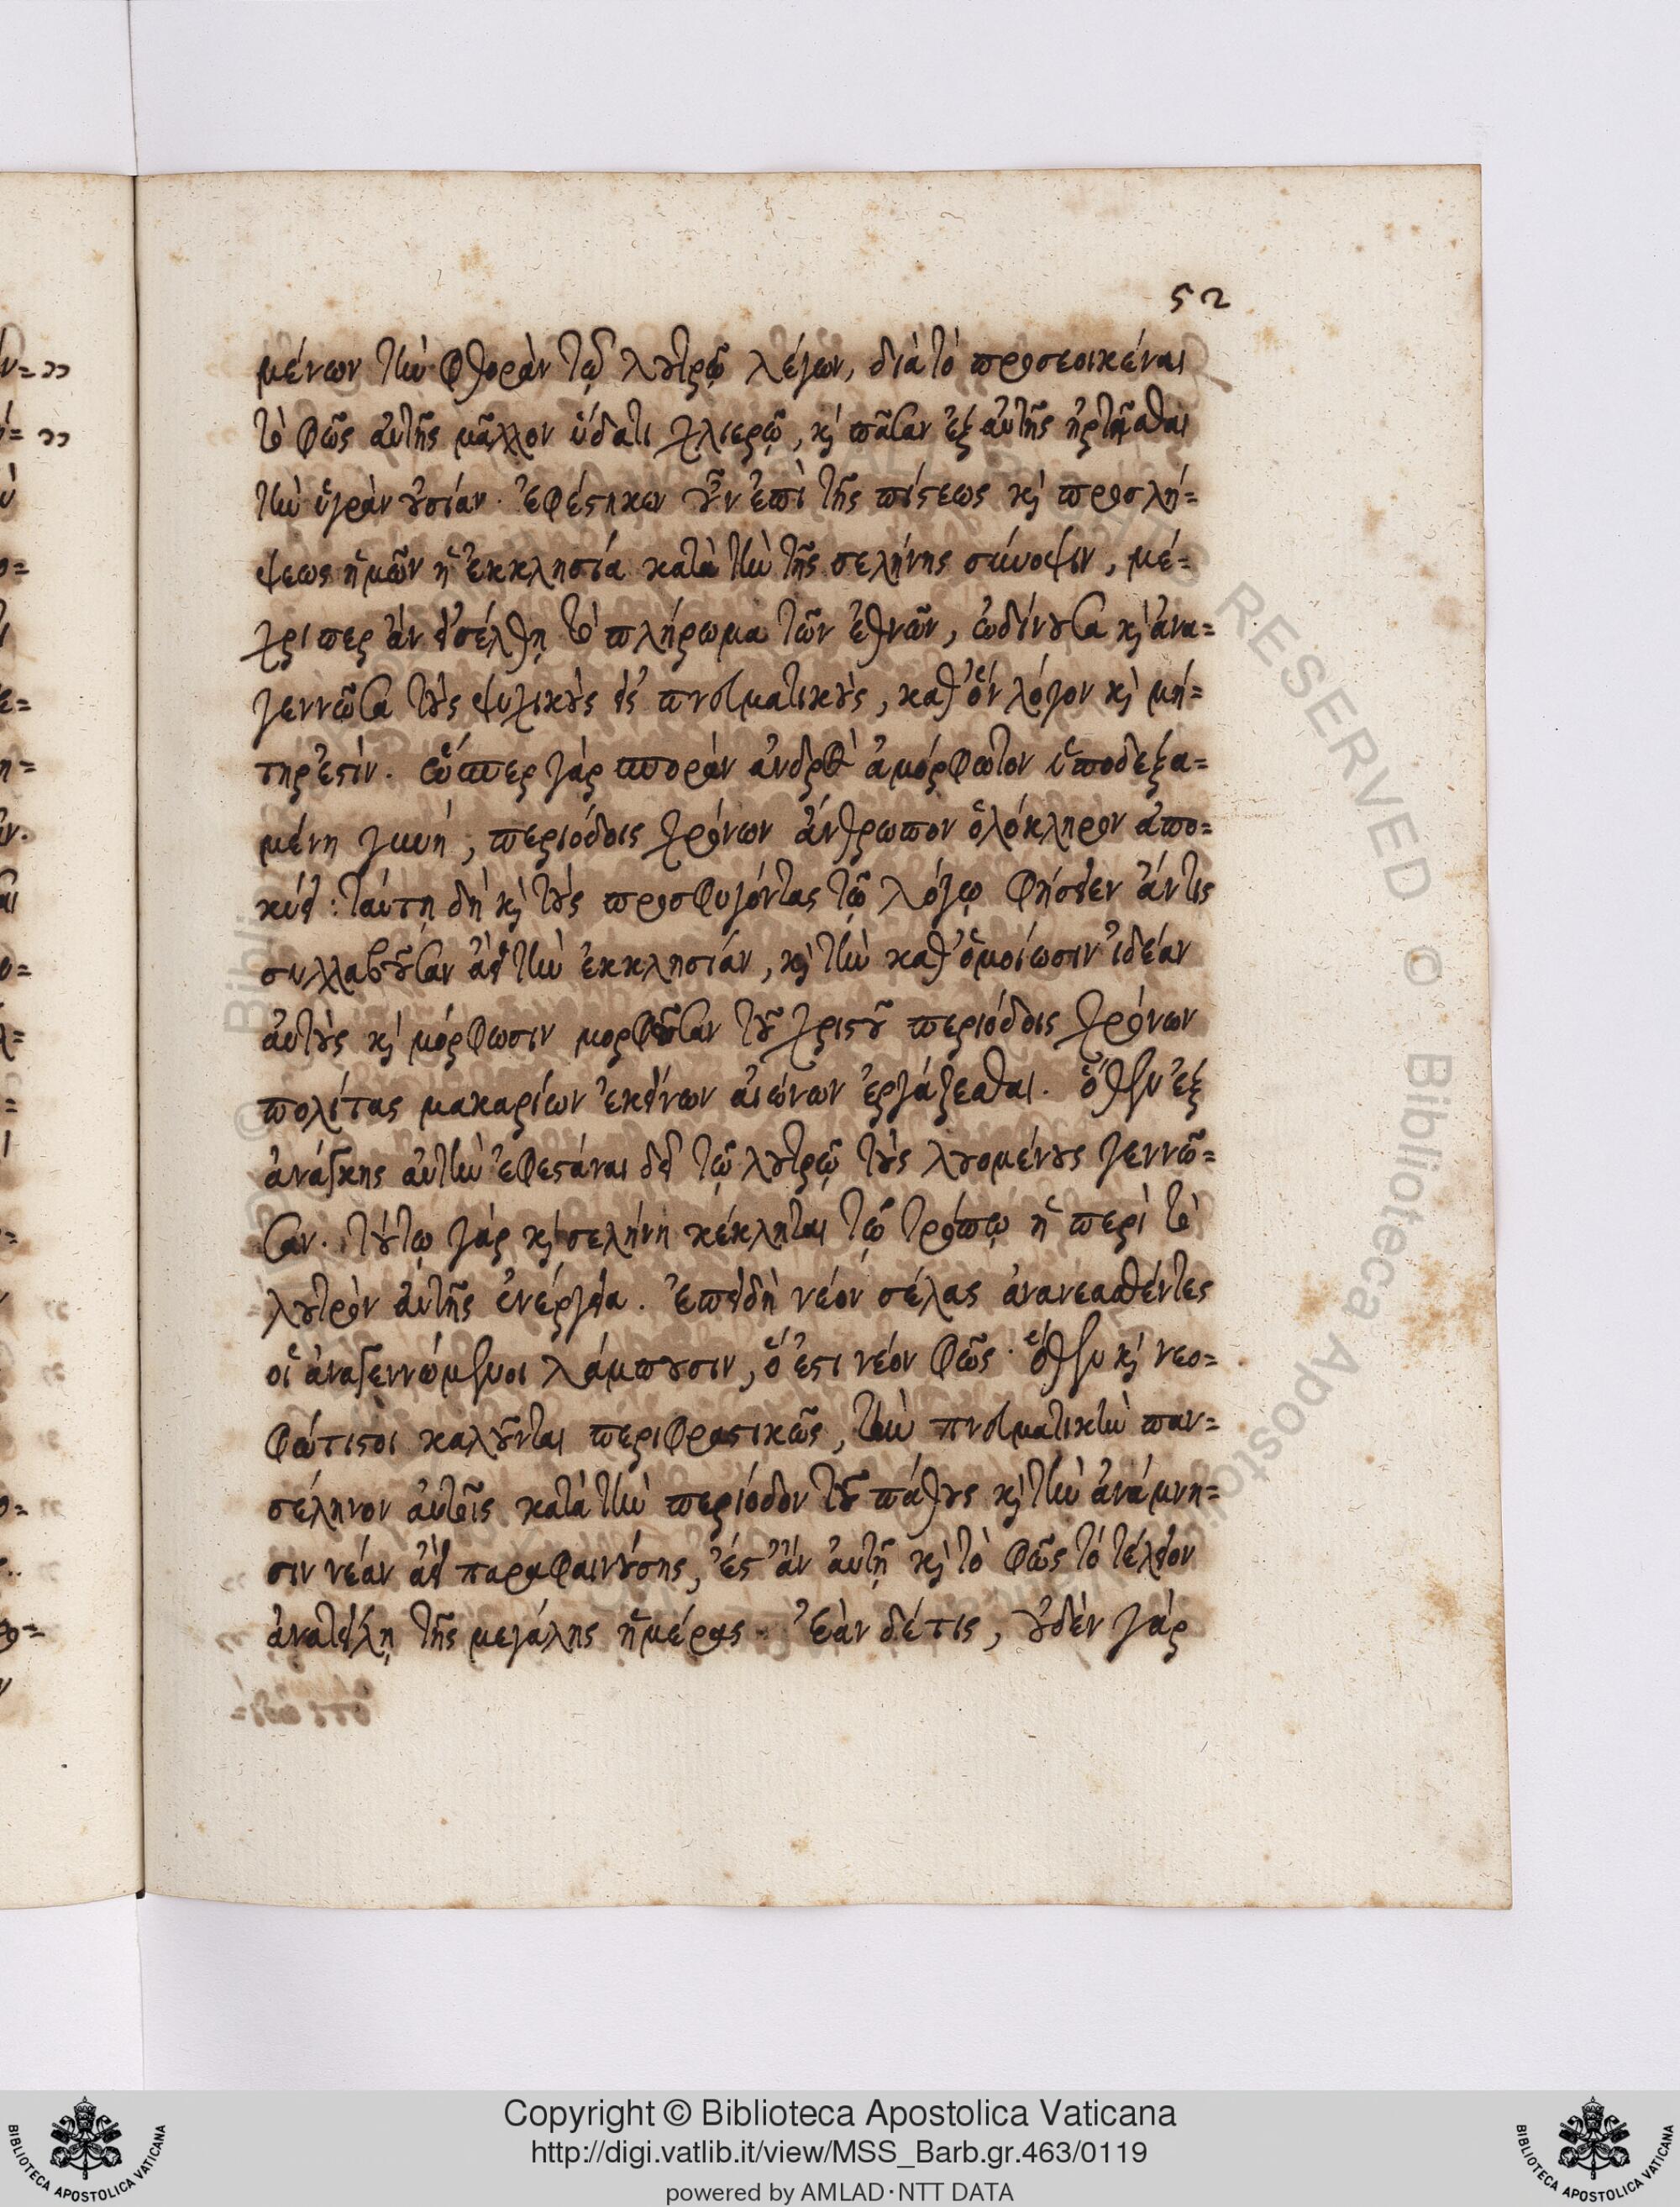 52
μένων τὴν φθορὰν τῷ λουτρῷ λέγων, διὰ τὸ προσεοικέναι
τὸ φῶς αὐτῆς μᾶλλον ὕδατι χλιερῷ, κὶ πᾶσαν ἐξ αὐτῆς ἠρτῆσθαι
τὴν ὑγρὰν οὐσίαν. ἐφέστηκεν οὖν ἐπὶ τῆς πίστεως κὶ προσλή=
ψεως ἡμῶν ἡ ἐκκλησία κατὰ τὴν τῆς σελήνης σύνοψιν, μέ=
χρι περ ἂν εἰσέλθῃ τὸ πλήρωμα τῶν ἐθνῶν, ὠδίνουσα κὶ ἀνα=
γεννῶσα τοὺς ψυχικοὺς εἰς πνευματικοὺς, καθ' ὃν λόγον κὶ μή=
τηρ ἐστίν. ὥσπερ γὰρ σποράν ἀνδρὸς ἀμόρφωτον ὑποδεξα=
μένη γυνή, περιόδοις χρόνων ἄνθρωπον ὁλόκληρον ἀπο=
κύει: ταύτῃ δὴ κὶ τοὺς προσφυγόντας τῷ λόγῳ φήσειεν ἄν τις
συλλαβοῦσαν ἀεὶ τὴν ἐκκλησίαν, κὶ τὴν καθ' ὁμοίωσιν ἰδέαν
αὐτοὺς κὶ μόρφωσιν μορφοῦσαν τοῦ χριστοῦ περιόδοις χρόνων
πολίτας μακαρίων ἐκείνων αἰώνων ἐργάζεσθαι. ὅθεν ἐξ
ἀνάγκης αὐτὴν ἐφεστάναι δεῖ τῷ λουτρῷ τοὺς λουομένους γεννῶ=
σαν. τούτῳ γὰρ κὶ σελήνη κέκληται τῷ τρόπῳ ἡ περὶ τὸ
λουτρὸν αὐτῆς ἐνέργεια. ἐπειδὴ νέον σέλας ἀνανεασθέντες
οἱ ἀναγεννώμενοι λάμπουσιν, ὅ ἐστι νέον φῶς· ὅθεν κὶ νεο=
φώτιστοι καλοῦνται περιφραστικῶς, τὴν πνευματικὴν παν=
σέληνον αὐτοῖς κατὰ τὴν περίοδον τοῦ πάθους κὶ τὴν ἀνάμνη=
σιν νέαν ἀεὶ παραφαινούσης, ἔς τ' ἂν αὐτῇ κὶ τὸ φῶς τὸ τέλειον
ἀνατείλῃ τῆς μεγάλης ἡμέρας. ἐὰν δέ τις, οὐδὲν γὰρ
Copyright © Biblioteca Apostolica Vaticana
http://digi.vatlib.it/view/MSS_Barb.gr.463/0119
powered by AMLAD·NTT DATA
BIBLIOTECA APOSTOLICA VATICANA
BIBLIOTECA APOSTOLICA VATICANA